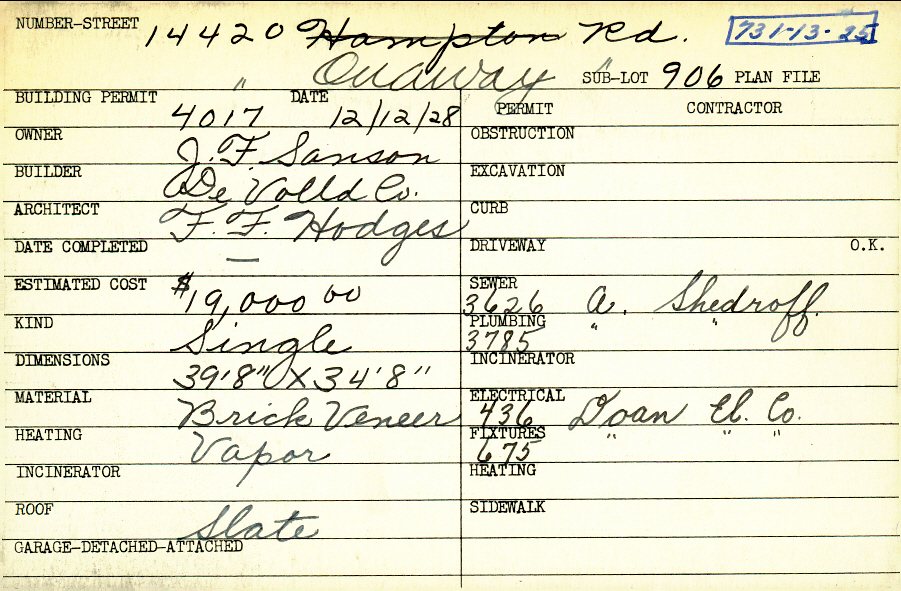 NUMBER-STREET 14420 Hampton Rd. 731-13-25
Onaway " SUB-LOT 906 PLAN FILE
BUILDING PERMIT 4017 DATE 12/12/28
OWNER J. F. Sanson
BUILDER De Volld Co.
ARCHITECT F. F. Hodges
DATE COMPLETED —
ESTIMATED COST $19,000 00
KIND Single
DIMENSIONS 39'8" X 34'8"
MATERIAL Brick Veneer
HEATING Vapor
INCINERATOR
ROOF Slate
GARAGE-DETACHED-ATTACHED
PERMIT CONTRACTOR
OBSTRUCTION
EXCAVATION
CURB
DRIVEWAY O.K.
SEWER
3626 A. Shedroff
PLUMBING
3785 " "
INCINERATOR
ELECTRICAL
436 Doan El. Co.
FIXTURES
675 " " "
HEATING
SIDEWALK